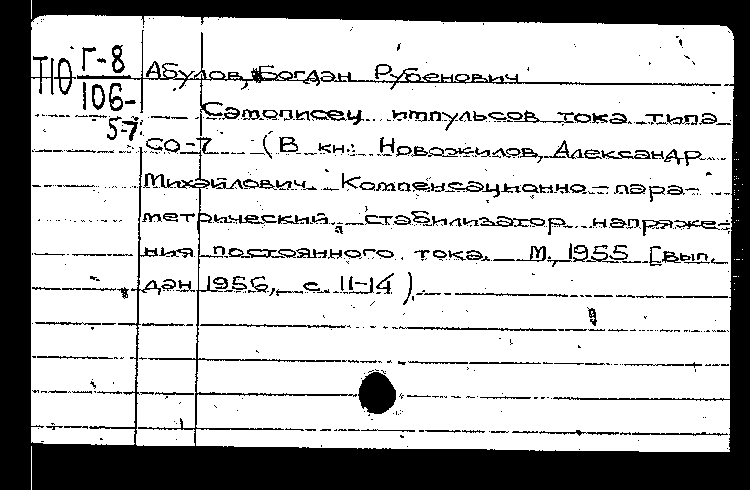 Т10 Г-8
106-
5-7
Абулов, Богдан Рубенович
Самописец импульсов тока типа
СО-7 (В кн: Новожилов, Александр
Михайлович. Компенсационно-пара-
метрический стабилизатор напряже-
ния постоянного тока. М., 1955 [вып.
дан 1956, с. 11-14).